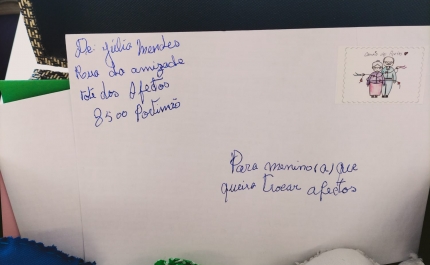 De: Júlia Mendes
Rua da amizade
lote dos Afetos
8500 Portimão
Para menino(a) que
queira trocar afectos